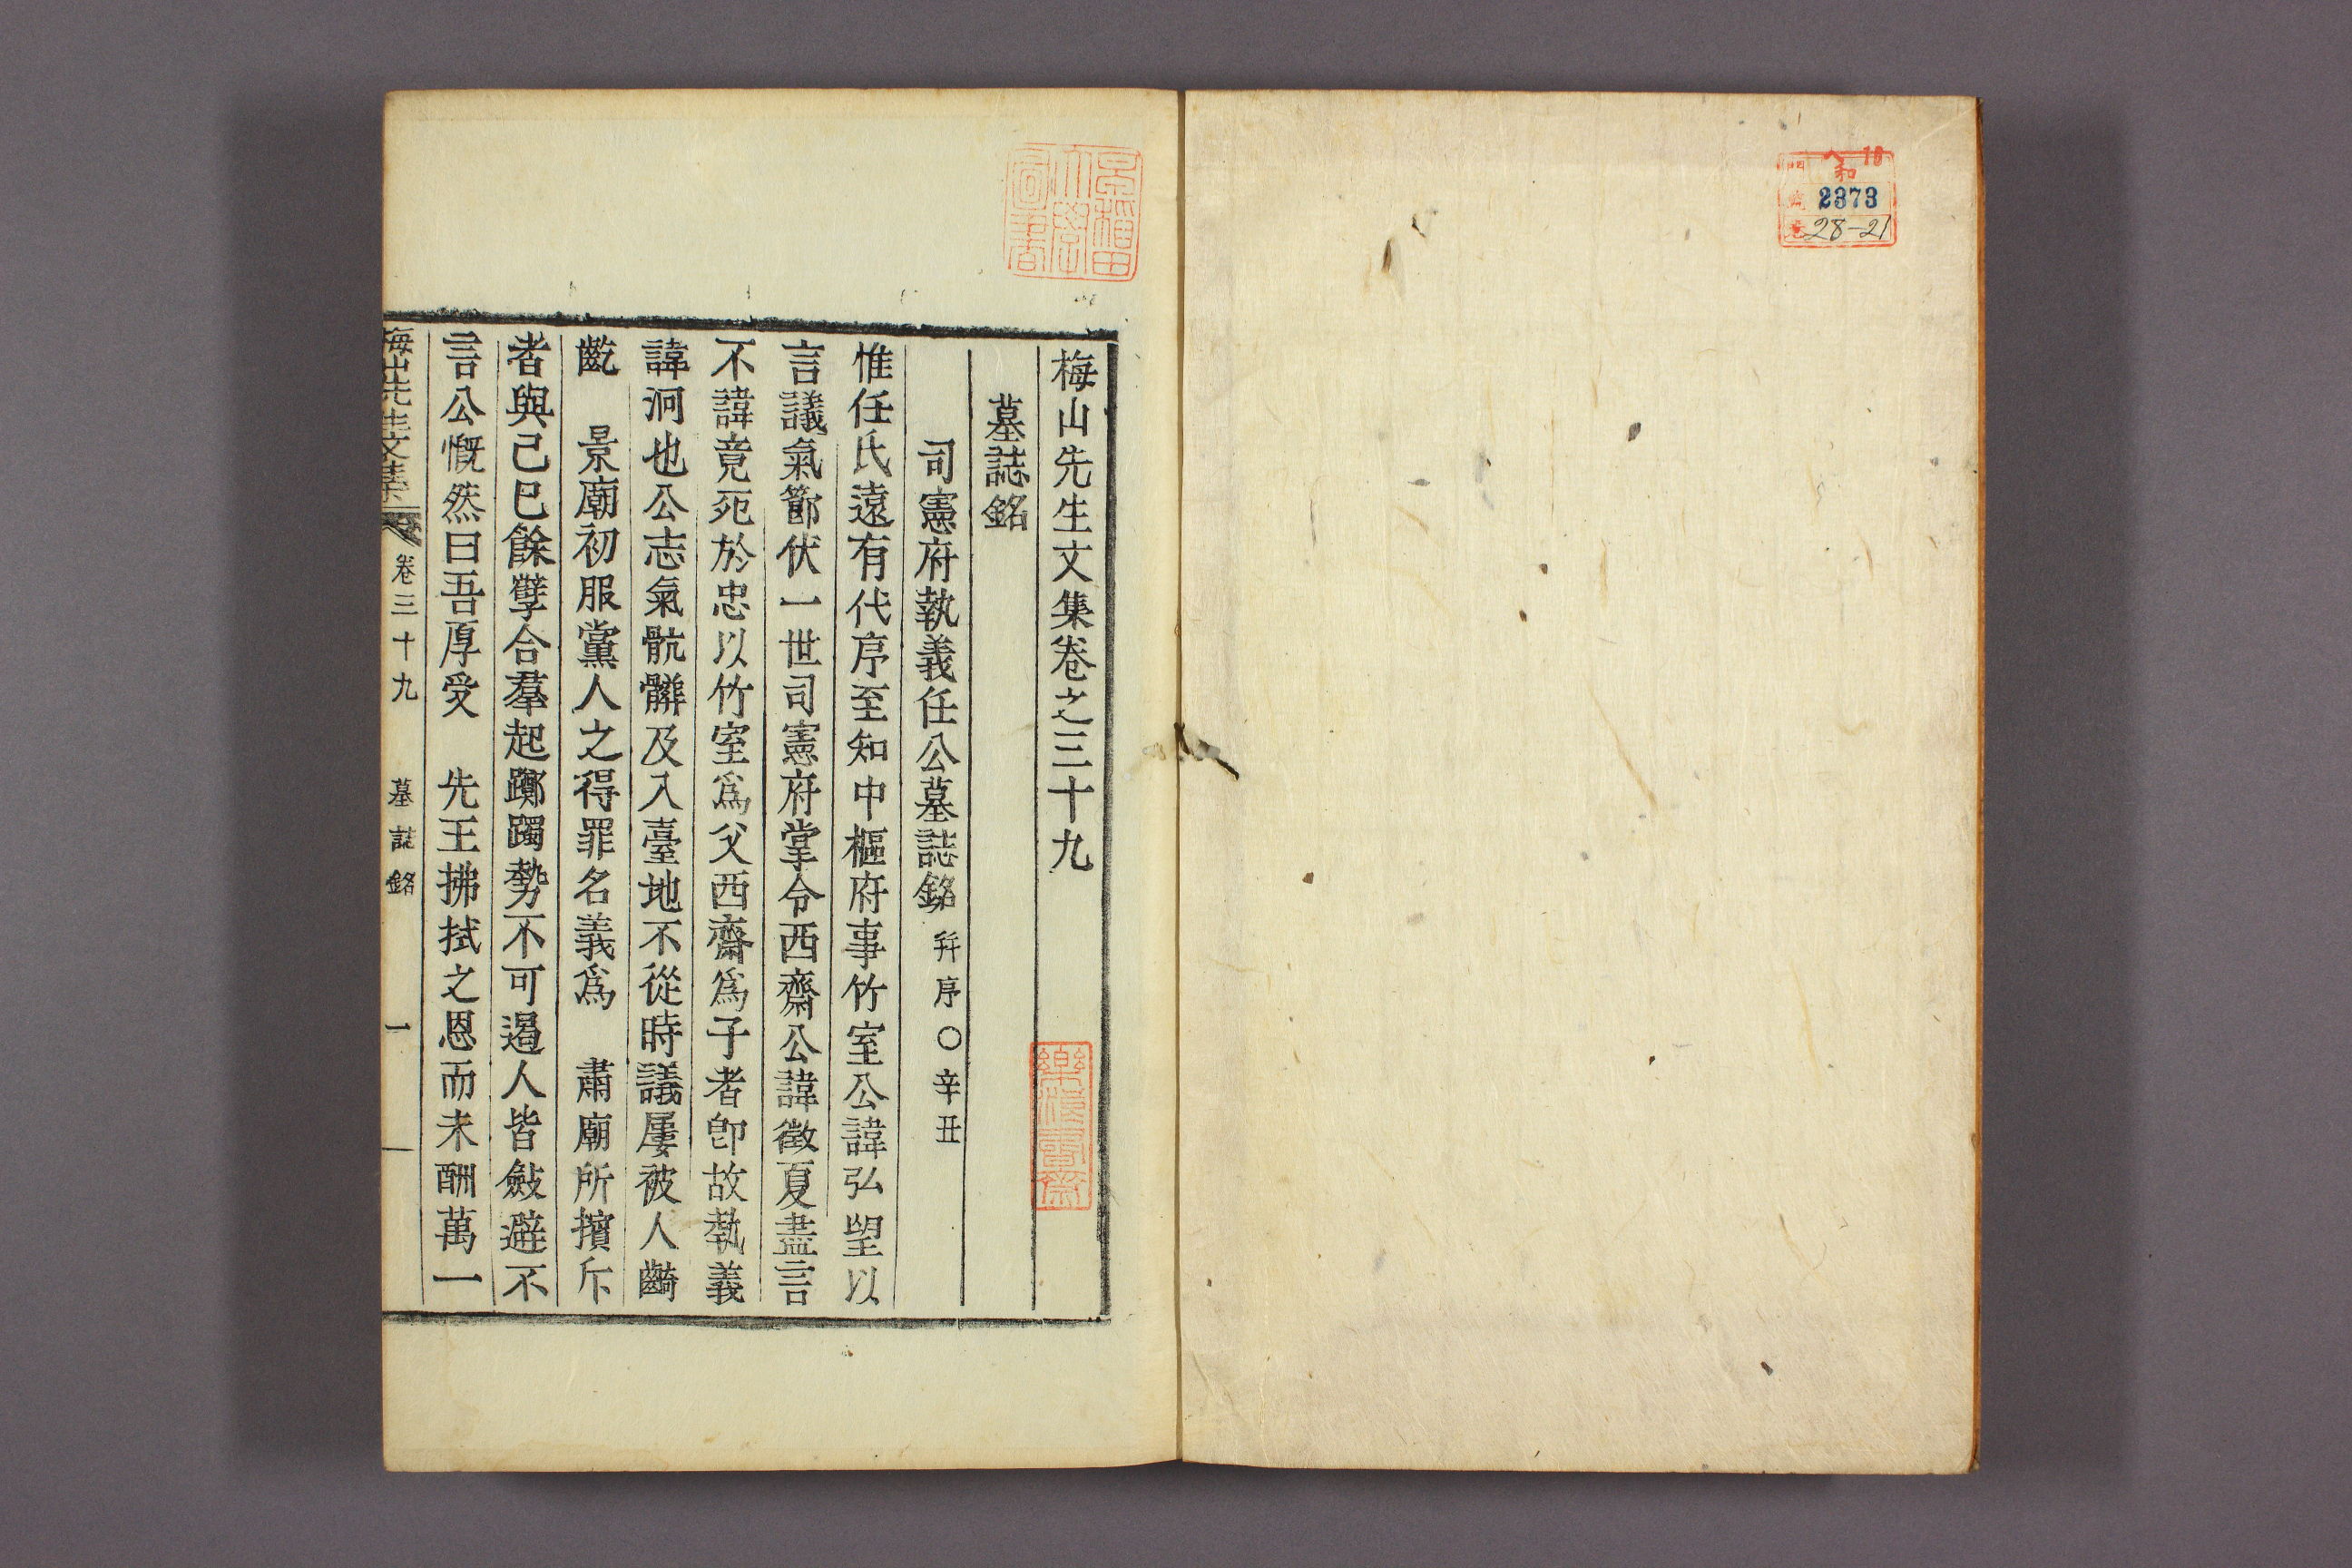 和
18
2373
28-21
早稲田大學圖書
梅山先生文集卷之三十九
墓誌銘
司憲府執義任公墓誌銘 幷序○辛丑
惟任氏遠有代序至知中樞府事竹室公諱弘望以
言議氣節伏一世司憲府掌令西齋公諱徵夏盡言
不諱竟死於忠以竹室爲父西齋爲子者卽故執義
諱泂也公志氣骯髒及入臺地不從時議屢被人齮
齕 景廟初服黨人之得罪名義爲 肅廟所擯斥
者與己巳餘孼合羣起躑躅勢不可遏人皆斂避不
言公慨然曰吾厚受 先王拂拭之恩而未酬萬一
梅山先生文集 卷三十九 墓誌銘 一